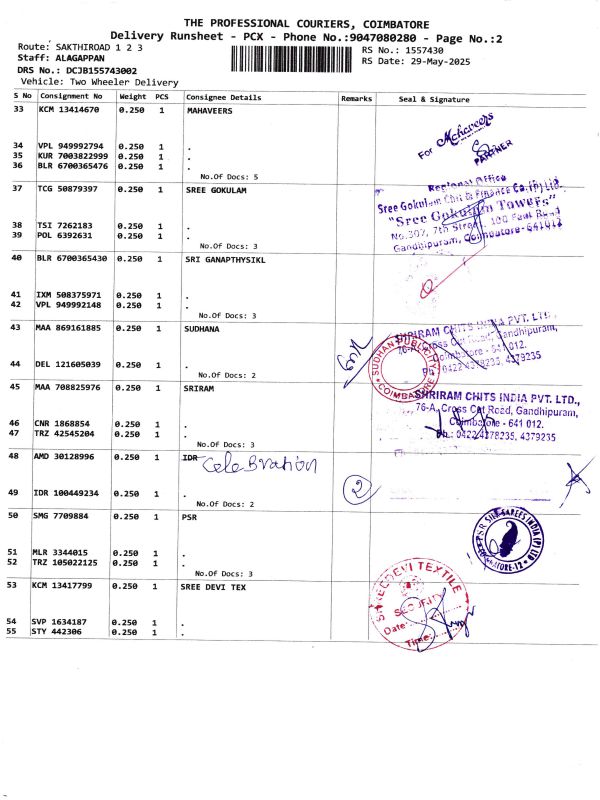 THE PROFESSIONAL COURIERS, COIMBATORE
Delivery Runsheet - PCX - Phone No.:9047080280 - Page No.:2
Route: SAKTHIROAD 1 2 3
RS No.: 1557430
Staff: ALAGAPPAN
RS Date: 29-May-2025
DRS No.: DCJB155743002
Vehicle: Two Wheeler Delivery
S No Consignment No Weight PCS Consignee Details Remarks Seal & Signature
33 KCM 13414670 0.250 1 MAHAVEERS
For Mahaveers
PARTNER
34 VPL 949992794 0.250 1 .
35 KUR 7003822999 0.250 1 .
36 BLR 6700365476 0.250 1 .
No.Of Docs: 5
Regional Office
37 TCG 50879397 0.250 1 SREE GOKULAM
Sree Gokulam Chit & Finance Co.(P) Ltd.
"Sree Gokulam Towers"
No.307, 7th Street, 100 Feet Road
Gandhipuram, Coimbatore-641012
38 TSI 7262183 0.250 1 .
39 POL 6392631 0.250 1 .
No.Of Docs: 3
40 BLR 6700365430 0.250 1 SRI GANAPTHYSIKL
41 IXM 508375971 0.250 1 .
42 VPL 949992148 0.250 1 .
No.Of Docs: 3
43 MAA 869161885 0.250 1 SUDHANA
SHRIRAM CHITS INDIA PVT. LTD.,
76-A, Cross Cut Road, Gandhipuram,
Coimbatore - 641 012.
Ph: 0422 4378235, 4379235
SUDHAN PUBLICITY
COIMBATORE
44 DEL 121605039 0.250 1 .
No.Of Docs: 2
45 MAA 708825976 0.250 1 SRIRAM
SHRIRAM CHITS INDIA PVT. LTD.,
76-A, Cross Cut Road, Gandhipuram,
Coimbatore - 641 012.
Ph.: 0422 4378235, 4379235
46 CNR 1868854 0.250 1 .
47 TRZ 42545204 0.250 1 .
No.Of Docs: 3
48 AMD 30128996 0.250 1 IDR
Celebration
2
49 IDR 100449234 0.250 1 .
No.Of Docs: 2
50 SMG 7709884 0.250 1 PSR
PSR SILK SAREES INDIA (P) LTD
51 MLR 3344015 0.250 1 .
52 TRZ 105022125 0.250 1 .
No.Of Docs: 3
53 KCM 13417799 0.250 1 SREE DEVI TEX
SREEDEVI TEXTILE
SECURITY
Date:
Time:
54 SVP 1634187 0.250 1 .
55 STY 442306 0.250 1 .